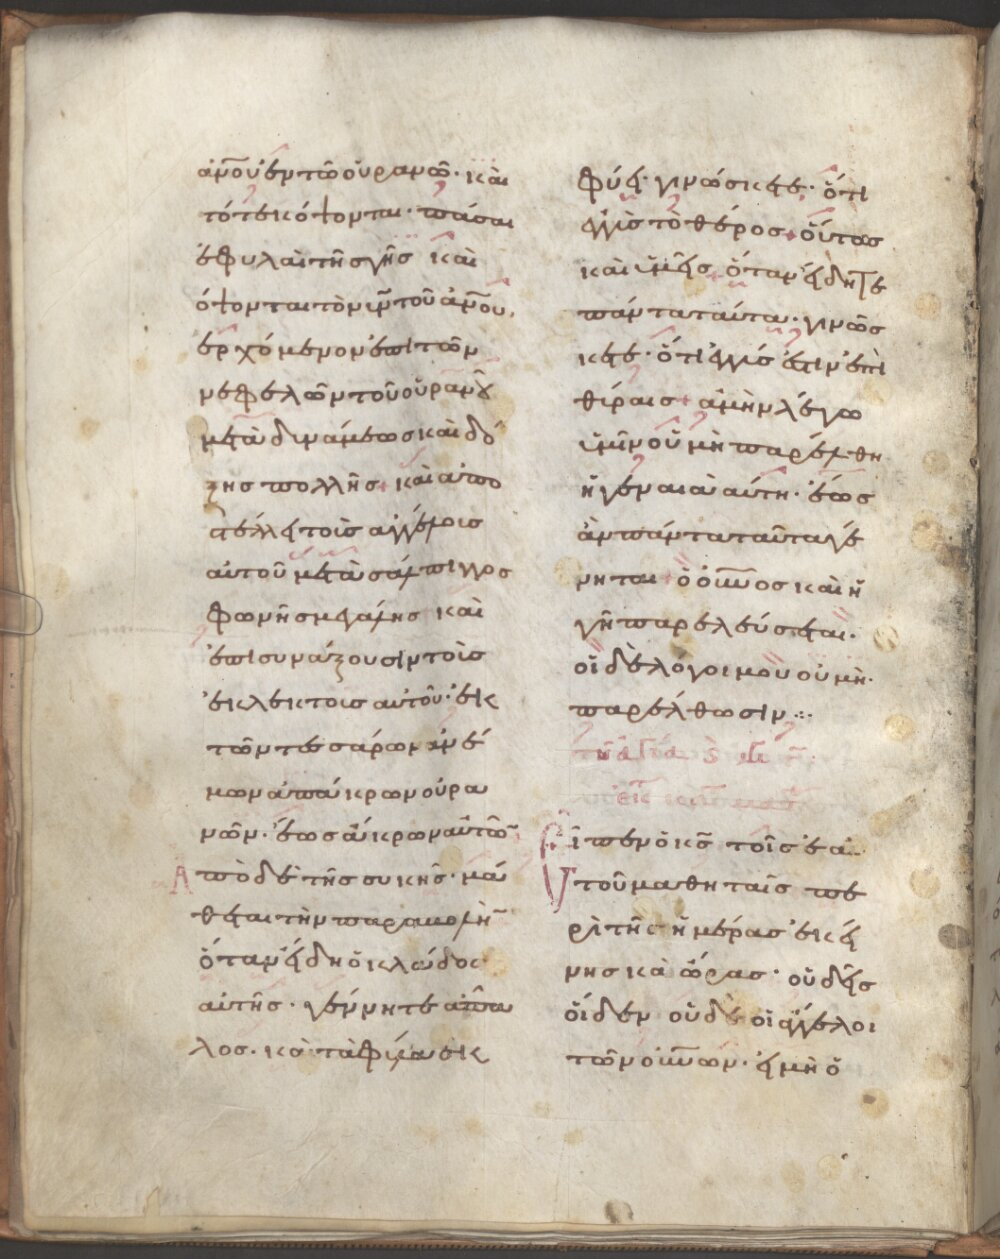 ἀν̅ου ἐν τῶ οὐρανῶ· καὶ
τότε κόψονται· πάσαι
ἑ φυλαὶ τῆς γῆς καὶ
ὄψονται τὸν υν̅ τοῦ ἀν̅ου,
ἐρχόμενον ἐπι τῶν
νεφελῶν τοῦ οὐρανοῦ
μετὰ δινάμεως καὶ δό
ξης πολλῆς· καὶ απο
στέλλει τοὶς αγγέλοις
αυτοῦ μετὰ σάλπιγγος
φωνῆς μεγάλης καὶ
ἐπισυνάξουσιν τοὶς
ἐκλεκτοις αυτοῦ· ἐκ
τῶν τεσσάρων ἀνέ
μων ἀπ' ἄκρων οὐρα
νῶν· ἕως ἄκρων αὐτῶν
Ἀπὸ δὲ τῆς συκῆς· μά
θεται τὴν παραβολὴν
ὅταν εἴδη ὁ κλάδος
αὐτῆς· γένητε ἁπα
λος· κὰ τὰ φύλα ἐκ
φύει· γινώσκετε· ὅτι
ἐγγὺς τὸ θέρος· οὕτως
καὶ ὑμεῖς ὅταν εἴδητε
πάντα ταύτα· γινώσ
κετε· ὅτι ἐγγύς ἐστιν ἐπὶ
θύραις· ἀμὴν λέγω
ὑμὶν οὐ μὴ παρέλθη
ἡ γεναιὰ αύτη· ἕως
ἀν πάντα ταῦτα γέ
νηται ὁ οὐνος καὶ ἡ
γῆ παρελεύσεται·
οἱ δὲ λόγοι μου οὐ μὴ·
παρέλθωσιν
Εἶπεν ὁ κς̅ τοῖς ἑα
υτοῦ μαθηταῖς πε
ρὶ τῆς ἡμέρας ἐκεί
νης κὰ ὥρας· οὐδεὶς
οἶδεν οὐδὲ οἱ ἄγγελοι
τῶν οὐνων· εἰ μὴ ὁ